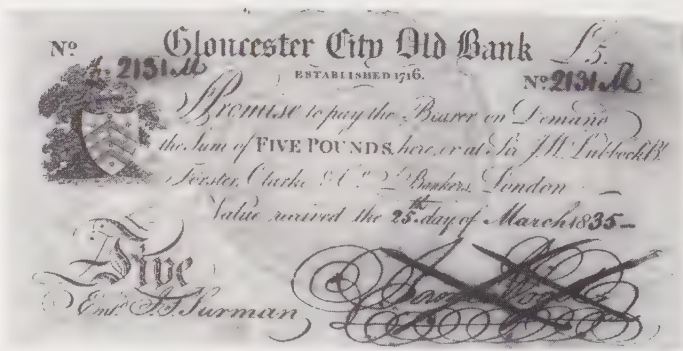 Gloucester City Old Bank £5.
ESTABLISHED 1716.
No 2131 M No 2131 M
I Promise to pay the Bearer on Demand
the Sum of FIVE POUNDS, here, or at Sir J. W. Lubbock Bt.
Forster, Clarke & Co. Bankers, London
Value received the 25th day of March 1835
Five
Entd. Surman